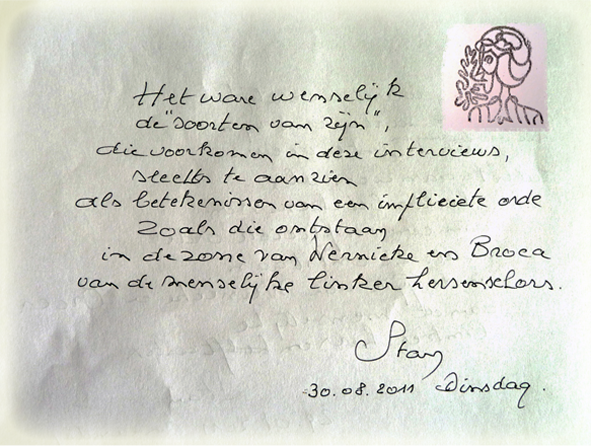 Het ware wenselijk
de "soorten van zijn",
die voorkomen in deze interviews,
slechts te aanzien
als betekenissen van een impliciete orde
zoals die ontstaan
in de zone van Wernicke en Broca
van de menselijke linker hersenschors.
Stan
30.08.2011 Dinsdag.